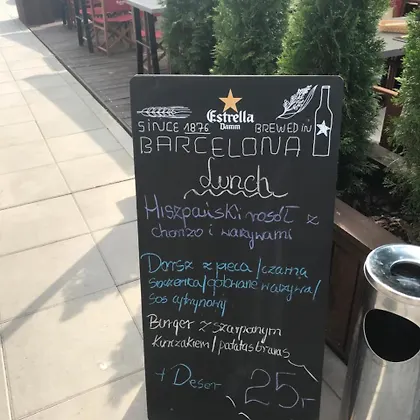 Estrella
Damm
SINCE 1876 BREWED IN
BARCELONA
Lunch
Hiszpański rosół z
chorizo i warzywami
Dorsz z pieca / czarna
soczewica / grillowane warzywa /
sos cytrynowy
Burger z szarpanym
kurczakiem / patatas bravas
+ Deser 25zł